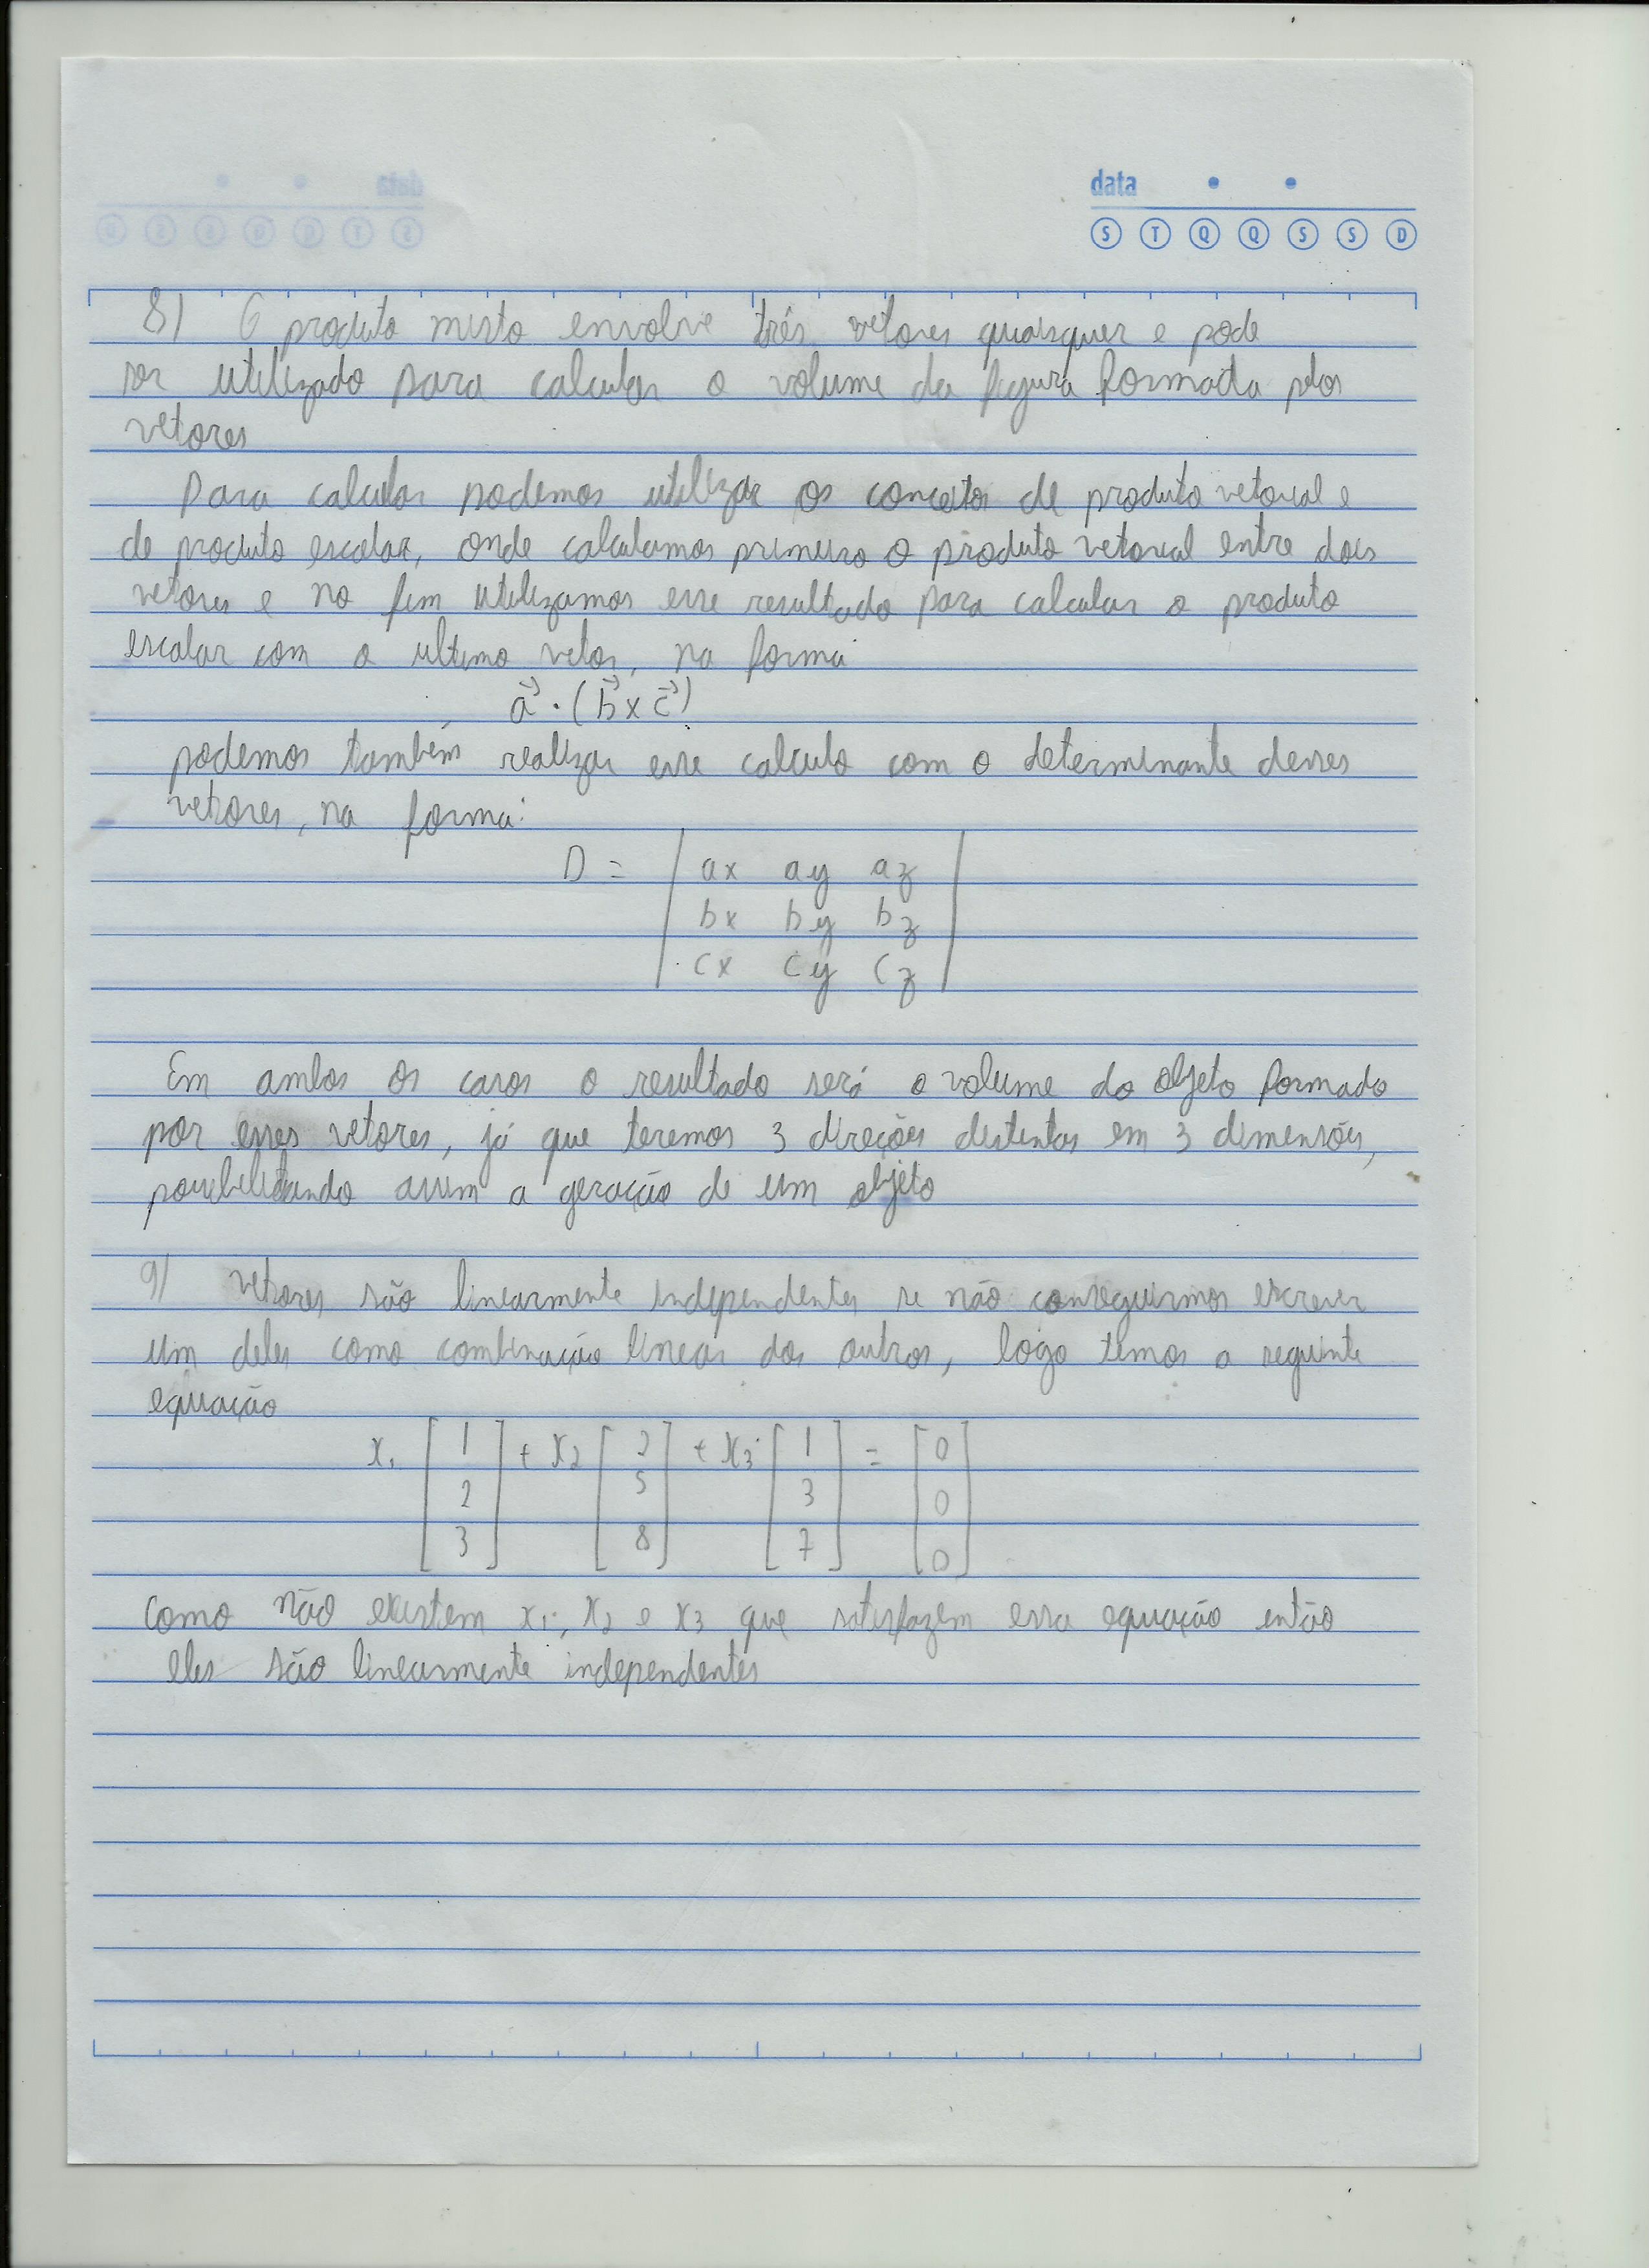 data
S T Q Q S S D
8) O produto misto envolve três vetores quaisquer e pode
ser utilizado para calcular o volume da figura formada pelos
vetores
Para calcular podemos utilizar os conceitos de produto vetorial e
de produto escalar, onde calculamos primeiro o produto vetorial entre dois
vetores e no fim utilizamos esse resultado para calcular o produto
escalar com o ultimo vetor, na forma
a⃗ · (b⃗ x c⃗)
podemos também realizar esse calculo com o determinante desses
vetores, na forma:
D = | ax ay az |
| bx by bz |
| cx cy cz |
Em ambos os casos o resultado será o volume do objeto formado
por esses vetores, já que teremos 3 direções distintas em 3 dimensões,
possibilitando assim a geração de um objeto
9) vetores são linearmente independentes se não conseguirmos escrever
um deles como combinação linear dos outros, logo temos a seguinte
equação
x₁ [1 2 3] + x₂ [2 5 8] + x₃ [1 3 7] = [0 0 0]
como não existem x₁, x₂ e x₃ que satisfazem essa equação então
eles são linearmente independentes